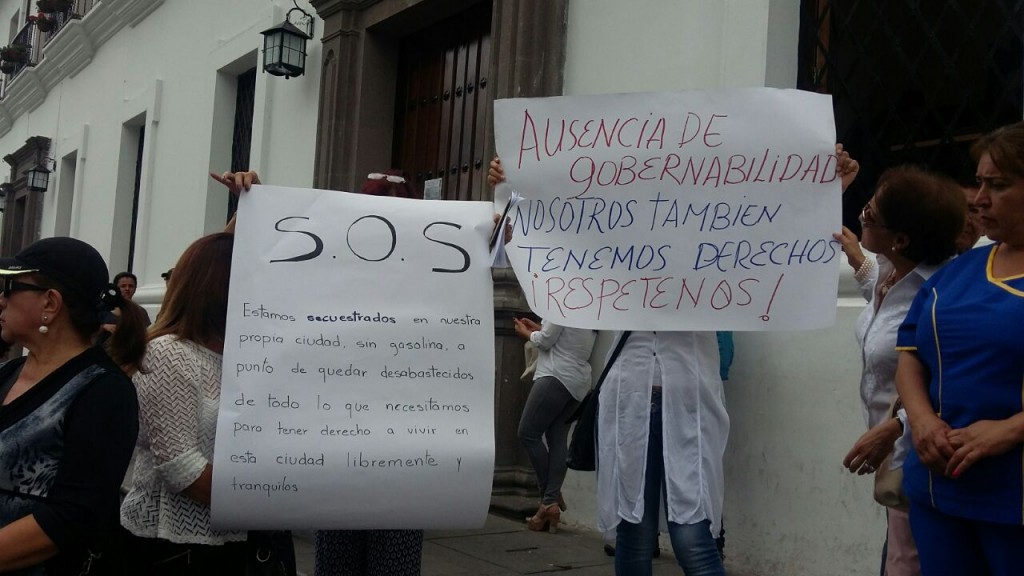 S.O.S
Estamos secuestrados en nuestra
propia ciudad, sin gasolina, a
punto de quedar desabastecidos
de todo lo que necesitamos
para tener derecho a vivir en
esta ciudad libremente y
tranquilos
AUSENCIA DE
GOBERNABILIDAD
NOSOTROS TAMBIEN
TENEMOS DERECHOS
¡RESPETENOS!